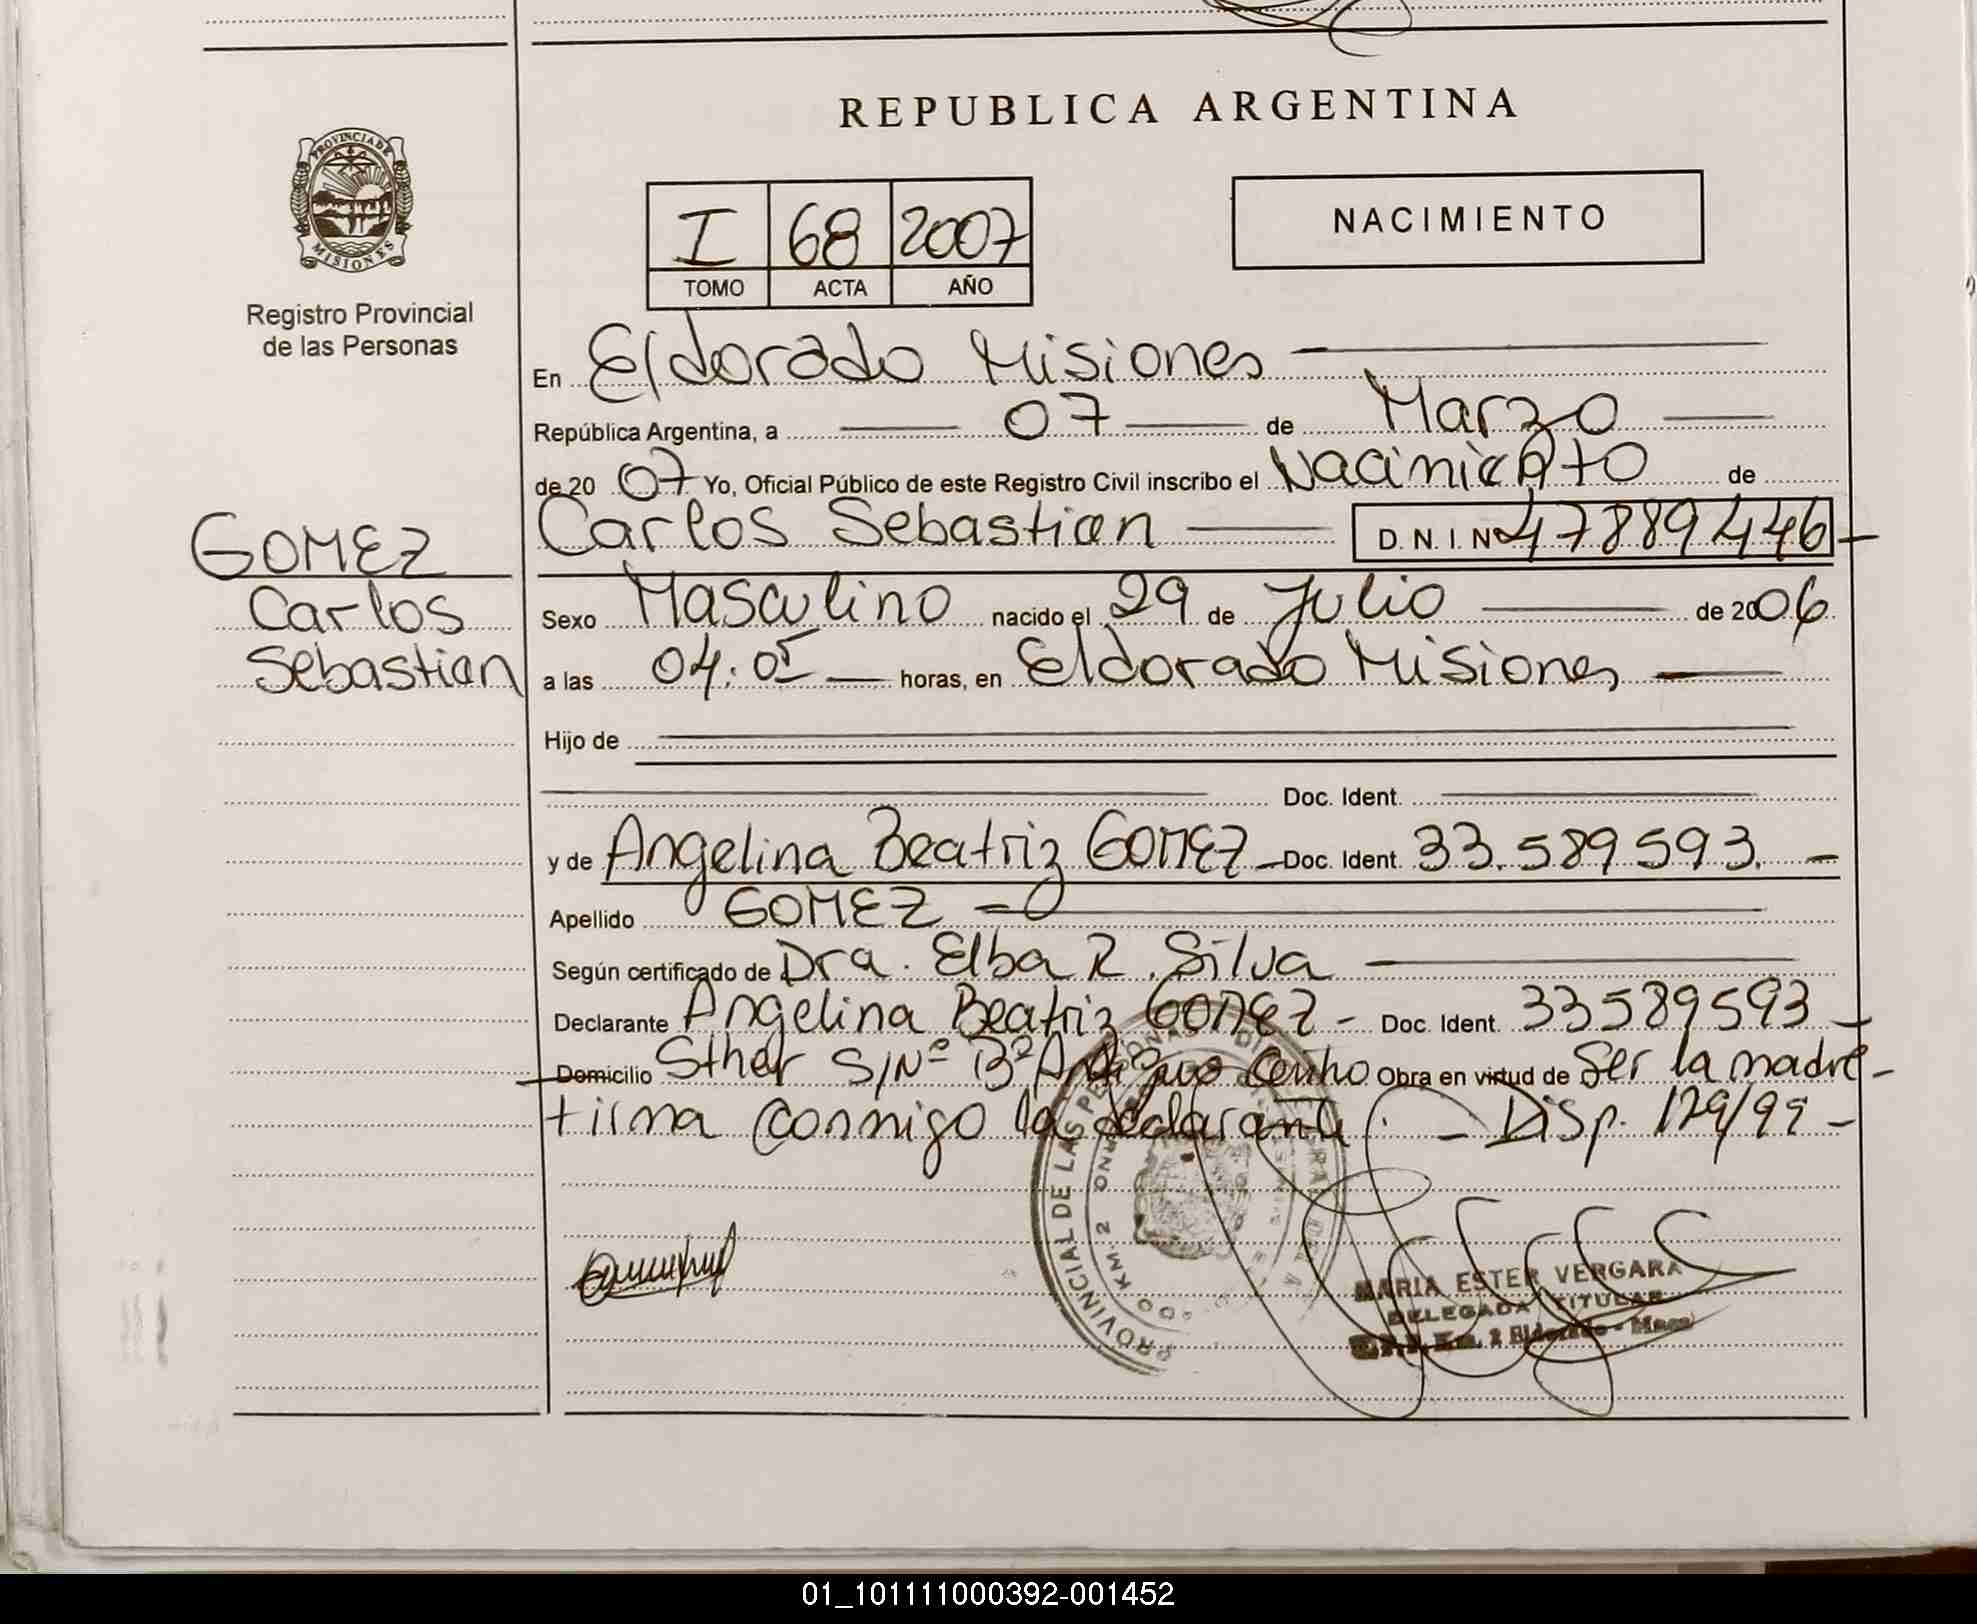 REPUBLICA ARGENTINA
PROVINCIA DE
MISIONES
Registro Provincial
de las Personas
I 68 2007
TOMO ACTA AÑO
NACIMIENTO
En Eldorado Misiones
República Argentina, a 07 de Marzo
de 20 07 Yo, Oficial Público de este Registro Civil inscribo el Nacimiento de
GOMEZ
Carlos
Sebastian
Carlos Sebastian D. N. I. Nº 47889446
Sexo Masculino nacido el 29 de Julio de 2006
a las 04:05 horas, en Eldorado Misiones
Hijo de
Doc. Ident.
y de Angelina Beatriz GOMEZ Doc. Ident. 33.589593.
Apellido GOMEZ
Según certificado de Dra. Elba R. Silva
Declarante Angelina Beatriz GOMEZ - Doc. Ident. 33589593
Domicilio S/Nº Bº Obra en virtud de Ser la madre -
firma conmigo la declarante. - Disp. 129/99 -
PROVINCIAL DE LAS PERSONAS
KM 2
MARIA ESTER VERGARA
DELEGADA TITULAR
Km. 2 Eldorado - Mnes
01_101111000392-001452